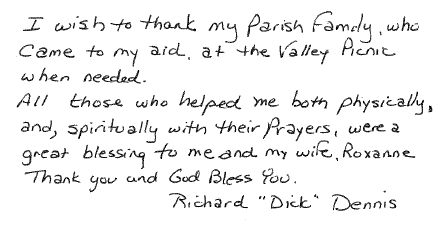 I wish to thank my Parish Family, who
Came to my aid, at the Valley Picnic
when needed.
All those who helped me both physically,
and, spiritually with their Prayers, were a
great blessing to me and my wife, Roxanne
Thank you and God Bless You.
Richard "Dick" Dennis